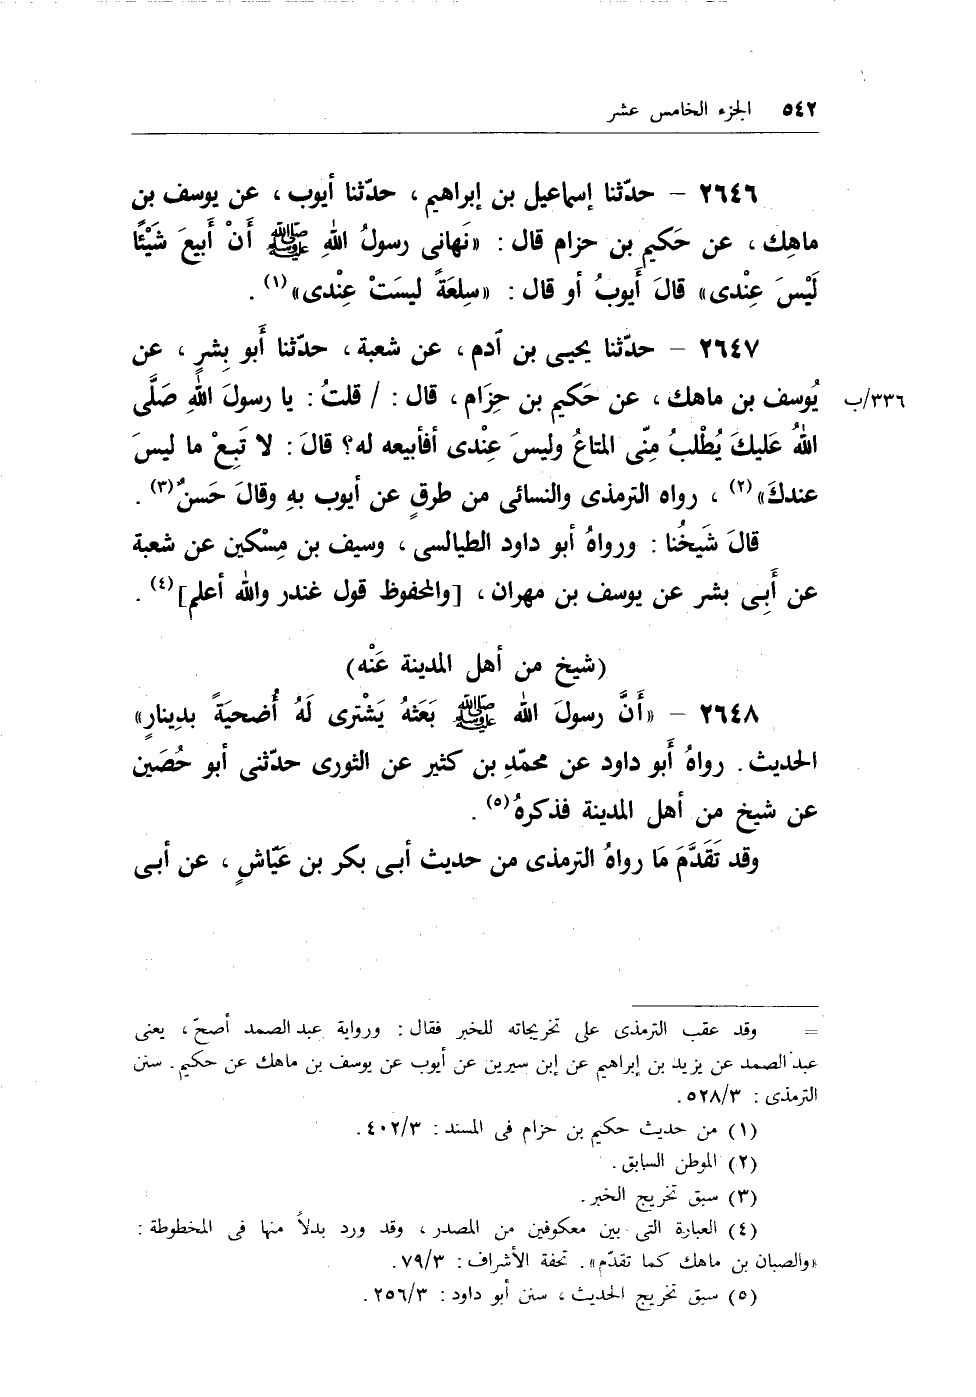 ٥٤٢ الجزء الخامس عشر
٢٦٤٦ – حدّثنا إسماعيل بن إبراهيم ، حدّثنا أيوب ، عن يوسف بن
ماهِك ، عن حَكيم بن حزام قال : «نَهانى رسولُ اللهِ ﷺ أَنْ أَبيعَ شَيْئًا
لَيْسَ عِنْدى» قالَ أَيوبُ أو قال : «سِلعَةً ليسَتْ عِنْدى»(١) .
٢٦٤٧ – حدّثنا يحيـى بن آدم ، عن شعبة ، حدّثنا أَبو بِشرٍ ، عن
يُوسف بن ماهك ، عن حَكيمِ بن حِزَام ، قال : / قلتُ : يا رسولَ اللهِ صَلَّى ٣٣٦/ب
اللهُ عَليكَ يُطْلبُ مِنّى المتاعُ وليسَ عِنْدى أفأبيعه له؟ قالَ : لا تَبِعْ ما ليسَ
عندكَ»(٢) ، رواه الترمذى والنسائى من طرقٍ عن أيوب بهِ وقالَ حَسنٌ(٣) .
قالَ شَيخُنا : ورواهُ أبو داود الطيالسى ، وسيف بن مِسْكين عن شعبة
عن أَبِـى بشر عن يوسف بن مهران ، [والمحفوظ قول غندر والله أعلم](٤) .
(شيخ من أهل المدينة عَنْه)
٢٦٤٨ – «أَنَّ رسولَ الله ﷺ بَعَثهُ يَشْترى لَهُ أُضحيَةً بدِينارٍ»
الحديث . رواهُ أَبو داود عن محمّدِ بن كثير عن الثورى حدّثنى أبو حُصَينٍ
عن شيخ من أهل المدينة فذكرهُ(٥) .
وقد تَقَدَّمَ مَا رواهُ الترمذى من حديث أبـى بكر بن عَيّاشٍ ، عن أبـى
= وقد عقب الترمذى على تخريجاته للخبر فقال : ورواية عبد الصمد أصحّ ، يعنى
عبد الصمد عن يزيد بن إبراهيم عن إبن سيرين عن أيوب عن يوسف بن ماهك عن حكيم . سنن
الترمذى : ٥٢٨/٣ .
(١) من حديث حكيم بن حزام فى المسند : ٤٠٢/٣ .
(٢) الموطن السابق .
(٣) سبق تخريج الخبر .
(٤) العبارة التى بين معكوفين من المصدر ، وقد ورد بدلاً منها فى المخطوطة :
«والصبان بن ماهك كما تقدّم» . تحفة الأشراف : ٧٩/٣ .
(٥) سبق تخريج الحديث ، سنن أبو داود : ٢٥٦/٣ .